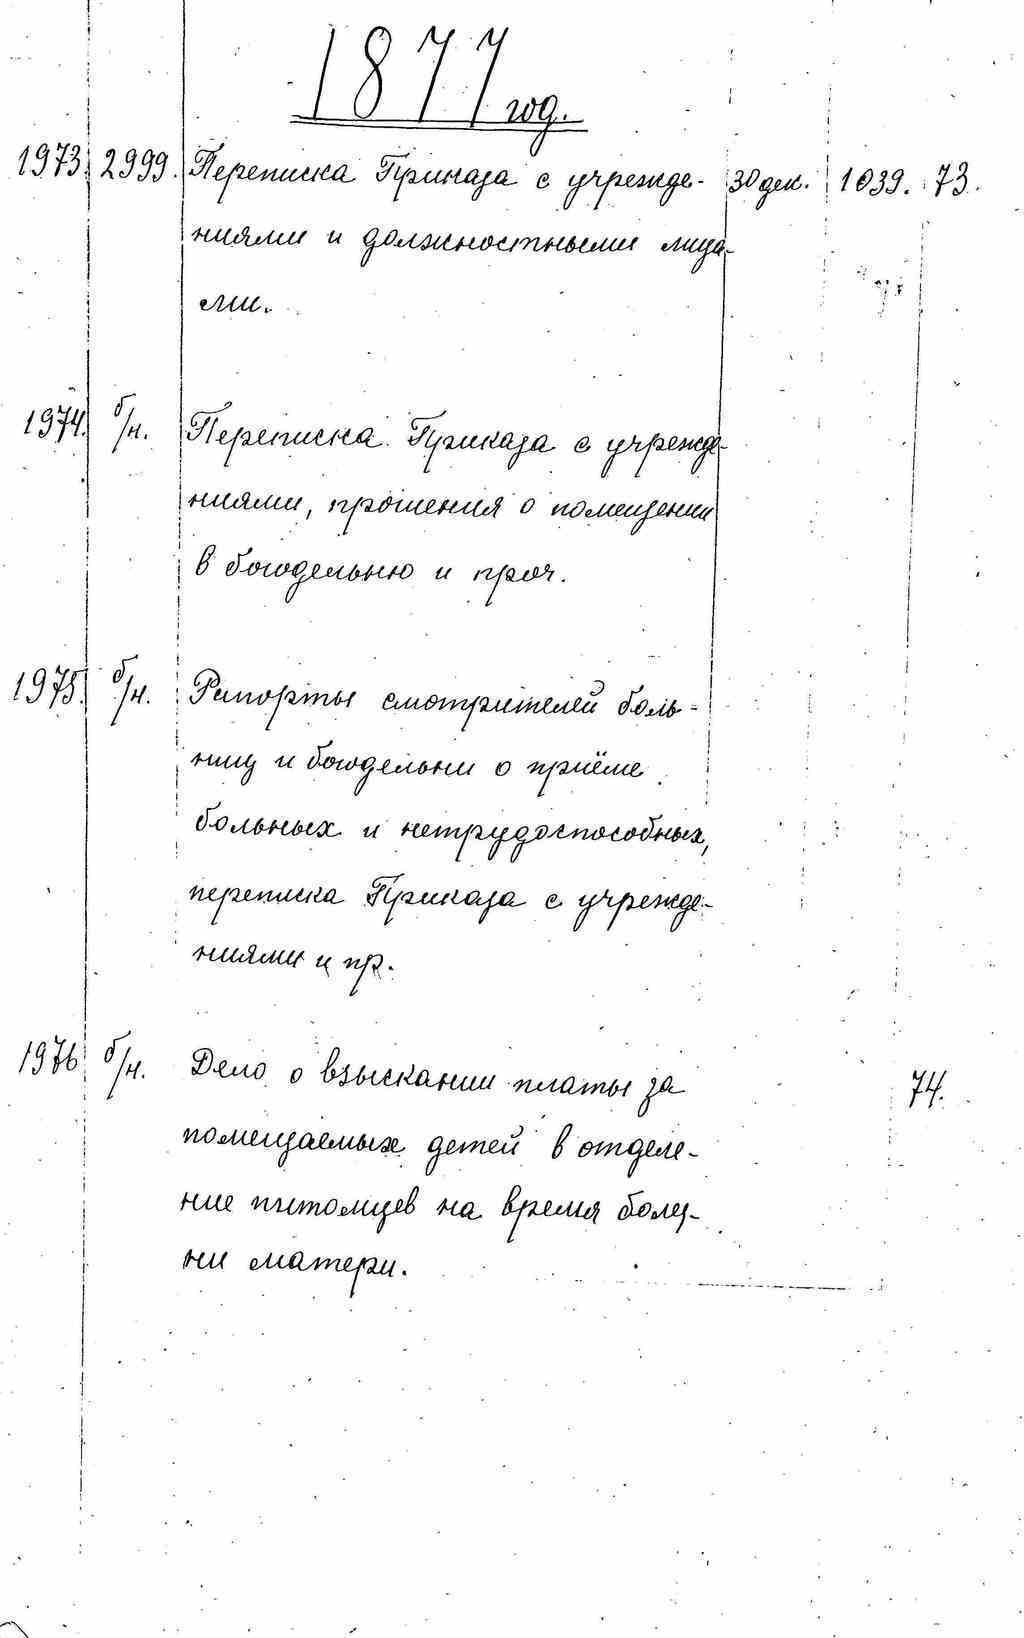 1877 год.
1973. 2999. Переписка Приказа с учрежде- 30 дек. 1039. 73.
ниями и должностными лица-
ми.
1974. б/н. Переписка Приказа с учрежде-
ниями, прошения о помещении
в богодельню и проч.
1975. б/н. Рапорты смотрителей боль-
ниц и богодельни о приёме
больных и нетрудоспособных,
переписка Приказа с учрежде-
ниями и пр.
1976 б/н. Дело о взыскании платы за 74.
помещаемых детей в отделе-
ние питомцев на время болез-
ни матери.